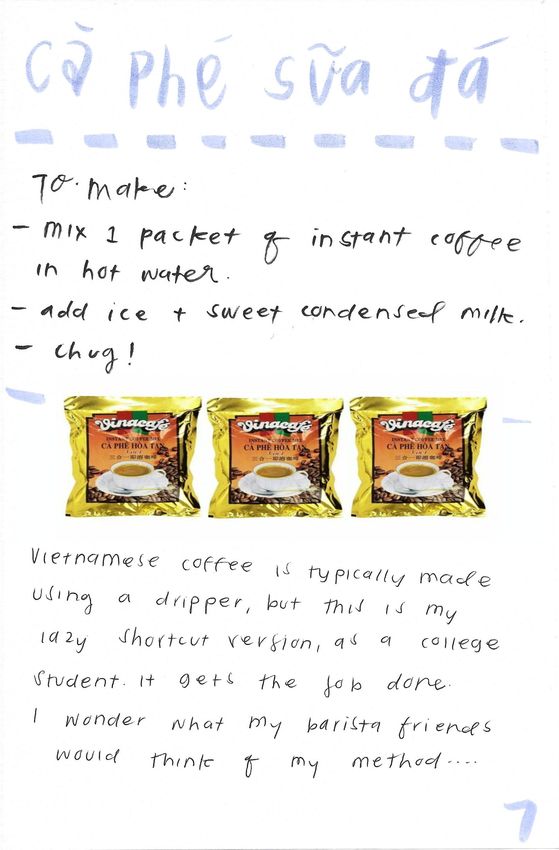 cà phé sữa đá
To make:
- mix 1 packet of instant coffee
in hot water.
- add ice + sweet condensed milk.
- chug!
Vinacafé
INSTANT COFFEE MIX
CÀ PHÊ HÒA TAN
3 in 1
三合一即溶咖啡
Vinacafé
INSTANT COFFEE MIX
CÀ PHÊ HÒA TAN
3 in 1
三合一即溶咖啡
Vinacafé
INSTANT COFFEE MIX
CÀ PHÊ HÒA TAN
3 in 1
三合一即溶咖啡
Vietnamese coffee is typically made
using a dripper, but this is my
lazy shortcut version, as a college
student. it gets the job done.
I wonder what my barista friends
would think of my method....
7